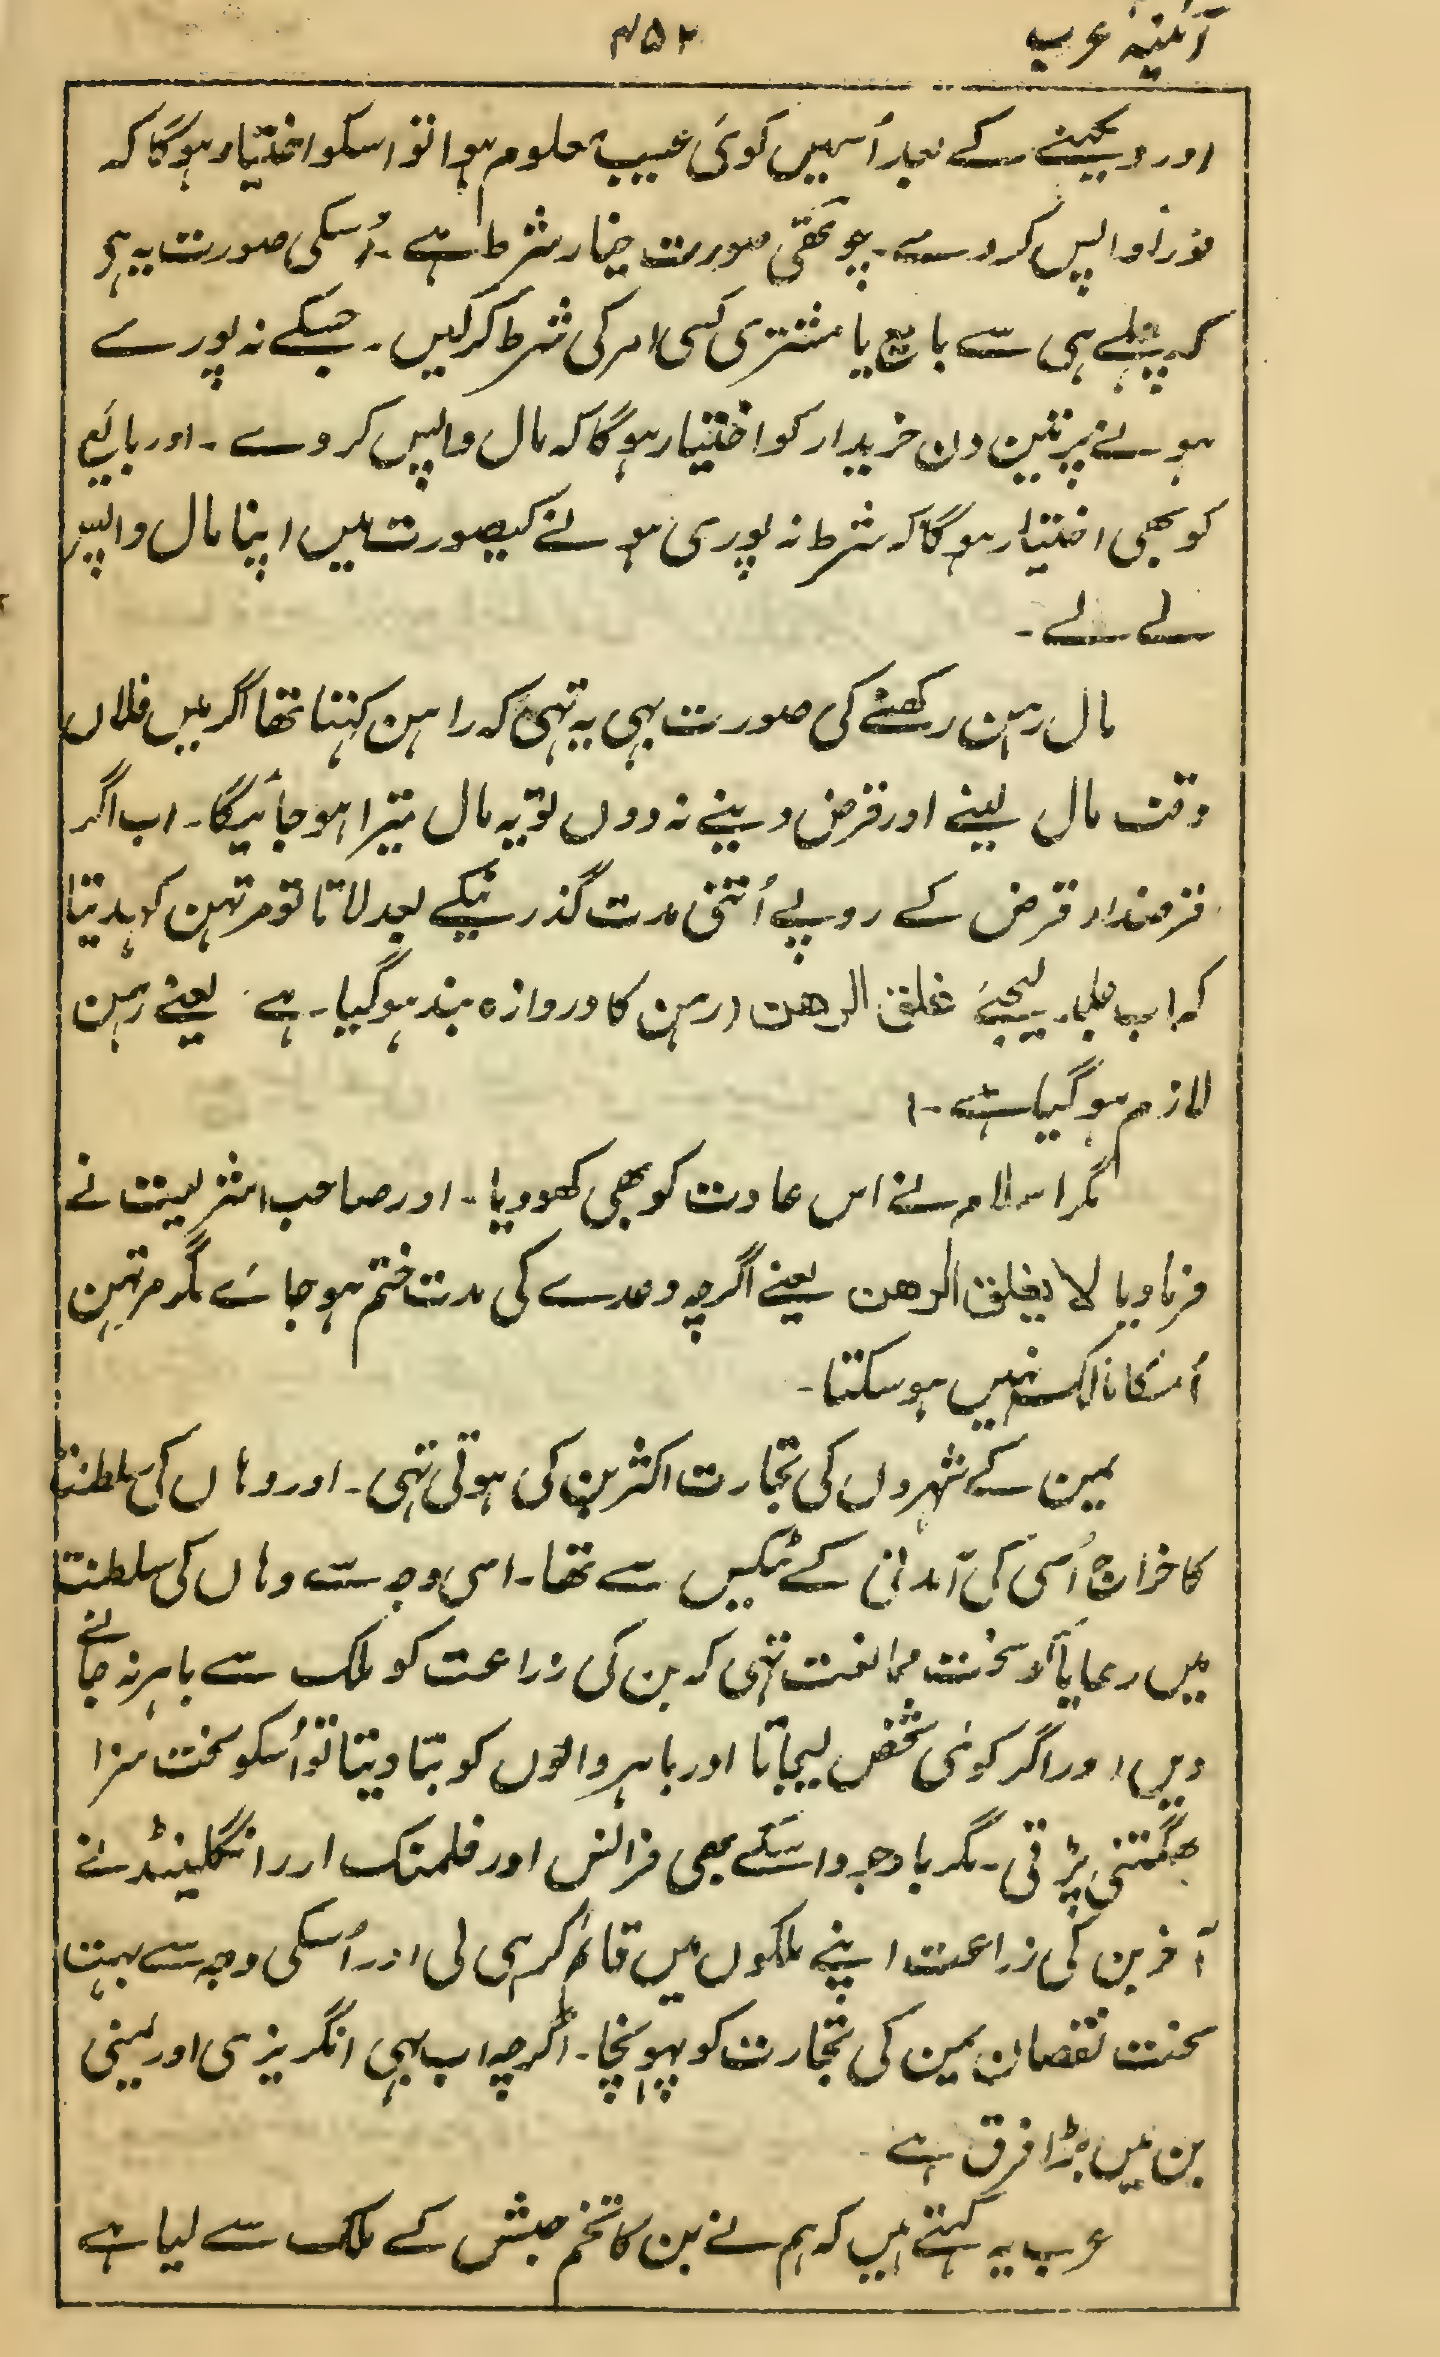 آئینہ عرب
۴۵۲
اور دیکھنے کے بعد اُسمیں کوئی عیب معلوم ہوا تو اسکو اختیار ہوگا کہ
فوراً واپس کردے۔ چوتھی صورت خیار شرط ہے۔ اُسکی صورت یہ ہی
کہ پہلے ہی سے بایع یا مشتری کسی امر کی شرط کرلیں۔ جسکے نہ پورے
ہونے پر تین دن خریدار کو اختیار ہوگا کہ مال واپس کردے۔ اور بائع
کو بھی اختیار ہوگا کہ شرط نہ پوری ہونے کیصورت میں اپنا مال واپس
لے لے۔
مال رہن رکھنے کی صورت یہی یہ تہی کہ راہن کہتا تھا اگر میں فلاں
وقت مال لینے اور قرض دینے نہ دوں تو یہ مال تیرا ہو جائیگا۔ اب اگر
قرضدار قرض کے روپے اُتنی مدت گذر نیکے بعد لاتا تو مرتہن کہدیتا
کہ اب جلد لیجئے غلق الرھن (رہن کا دروازہ بند ہوگیا۔ ہے یعنے رہن
لازم ہوگیا ہے۔)
مگر اسلام نے اس عادت کو بھی کھو دیا۔ اور صاحب شریعت نے
فرما دیا لا یغلق الرھن یعنے اگرچہ وعدے کی مدت ختم ہو جائے مگر مرتہن
اُسکا مالک نہیں ہو سکتا۔
یمن کے شہروں کی تجارت اکثر بن کی ہوتی تہی۔ اور وہاں کی سلطنت
کا خراج اُسی کی آمدنی کے ٹیکس سے تھا۔ اسی وجہ سے وہاں کی سلطنت
میں رعایا کو سخت ممانعت تہی کہ بن کی زراعت کو ملک سے باہر نہ جانے
دیں اور اگر کوئی شخص لیجاتا اور باہر والوں کو بتا دیتا تو اُسکو سخت سزا
بھگتنی پڑتی۔ مگر باوجود اسکے بھی فرانس اور فلمنک اور انگلینڈ نے
آخر بن کی زراعت اپنے ملکوں میں قائم کر ہی لی اور اُسکی وجہ سے بہت
سخت نقصان یمن کی تجارت کو پہونچا۔ اگرچہ اب بہی انگریزی اور یمنی
بن میں بڑا فرق ہے۔
عرب یہ کہتے ہیں کہ ہم نے بن کا تخم حبش کے ملک سے لیا ہے